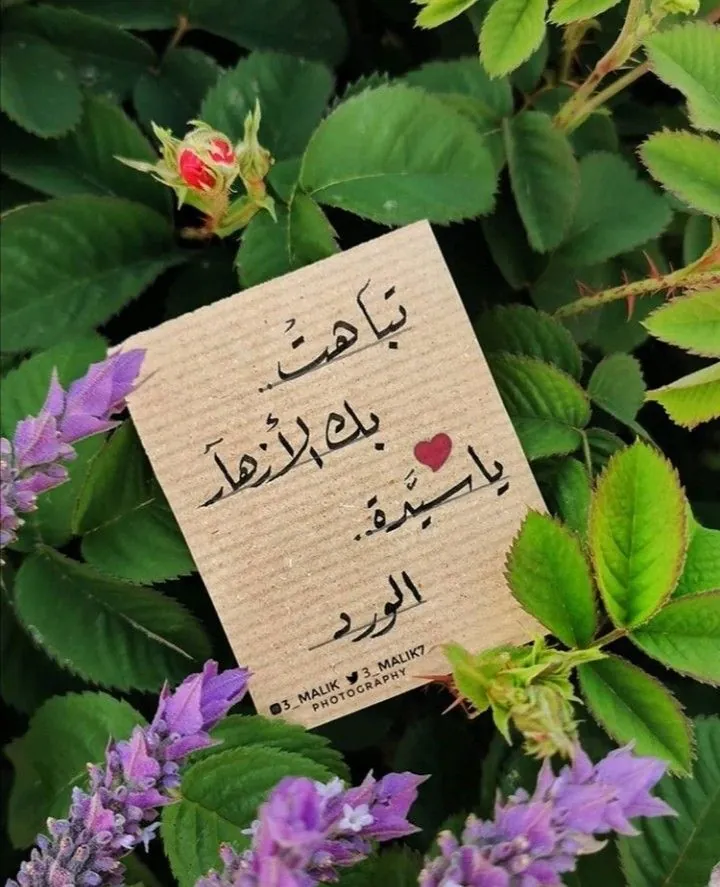 تباهتُ..
بك الأزهار
يا سيَّدة..
الورد
3_MALIK 3_MALIK7
PHOTOGRAPHY